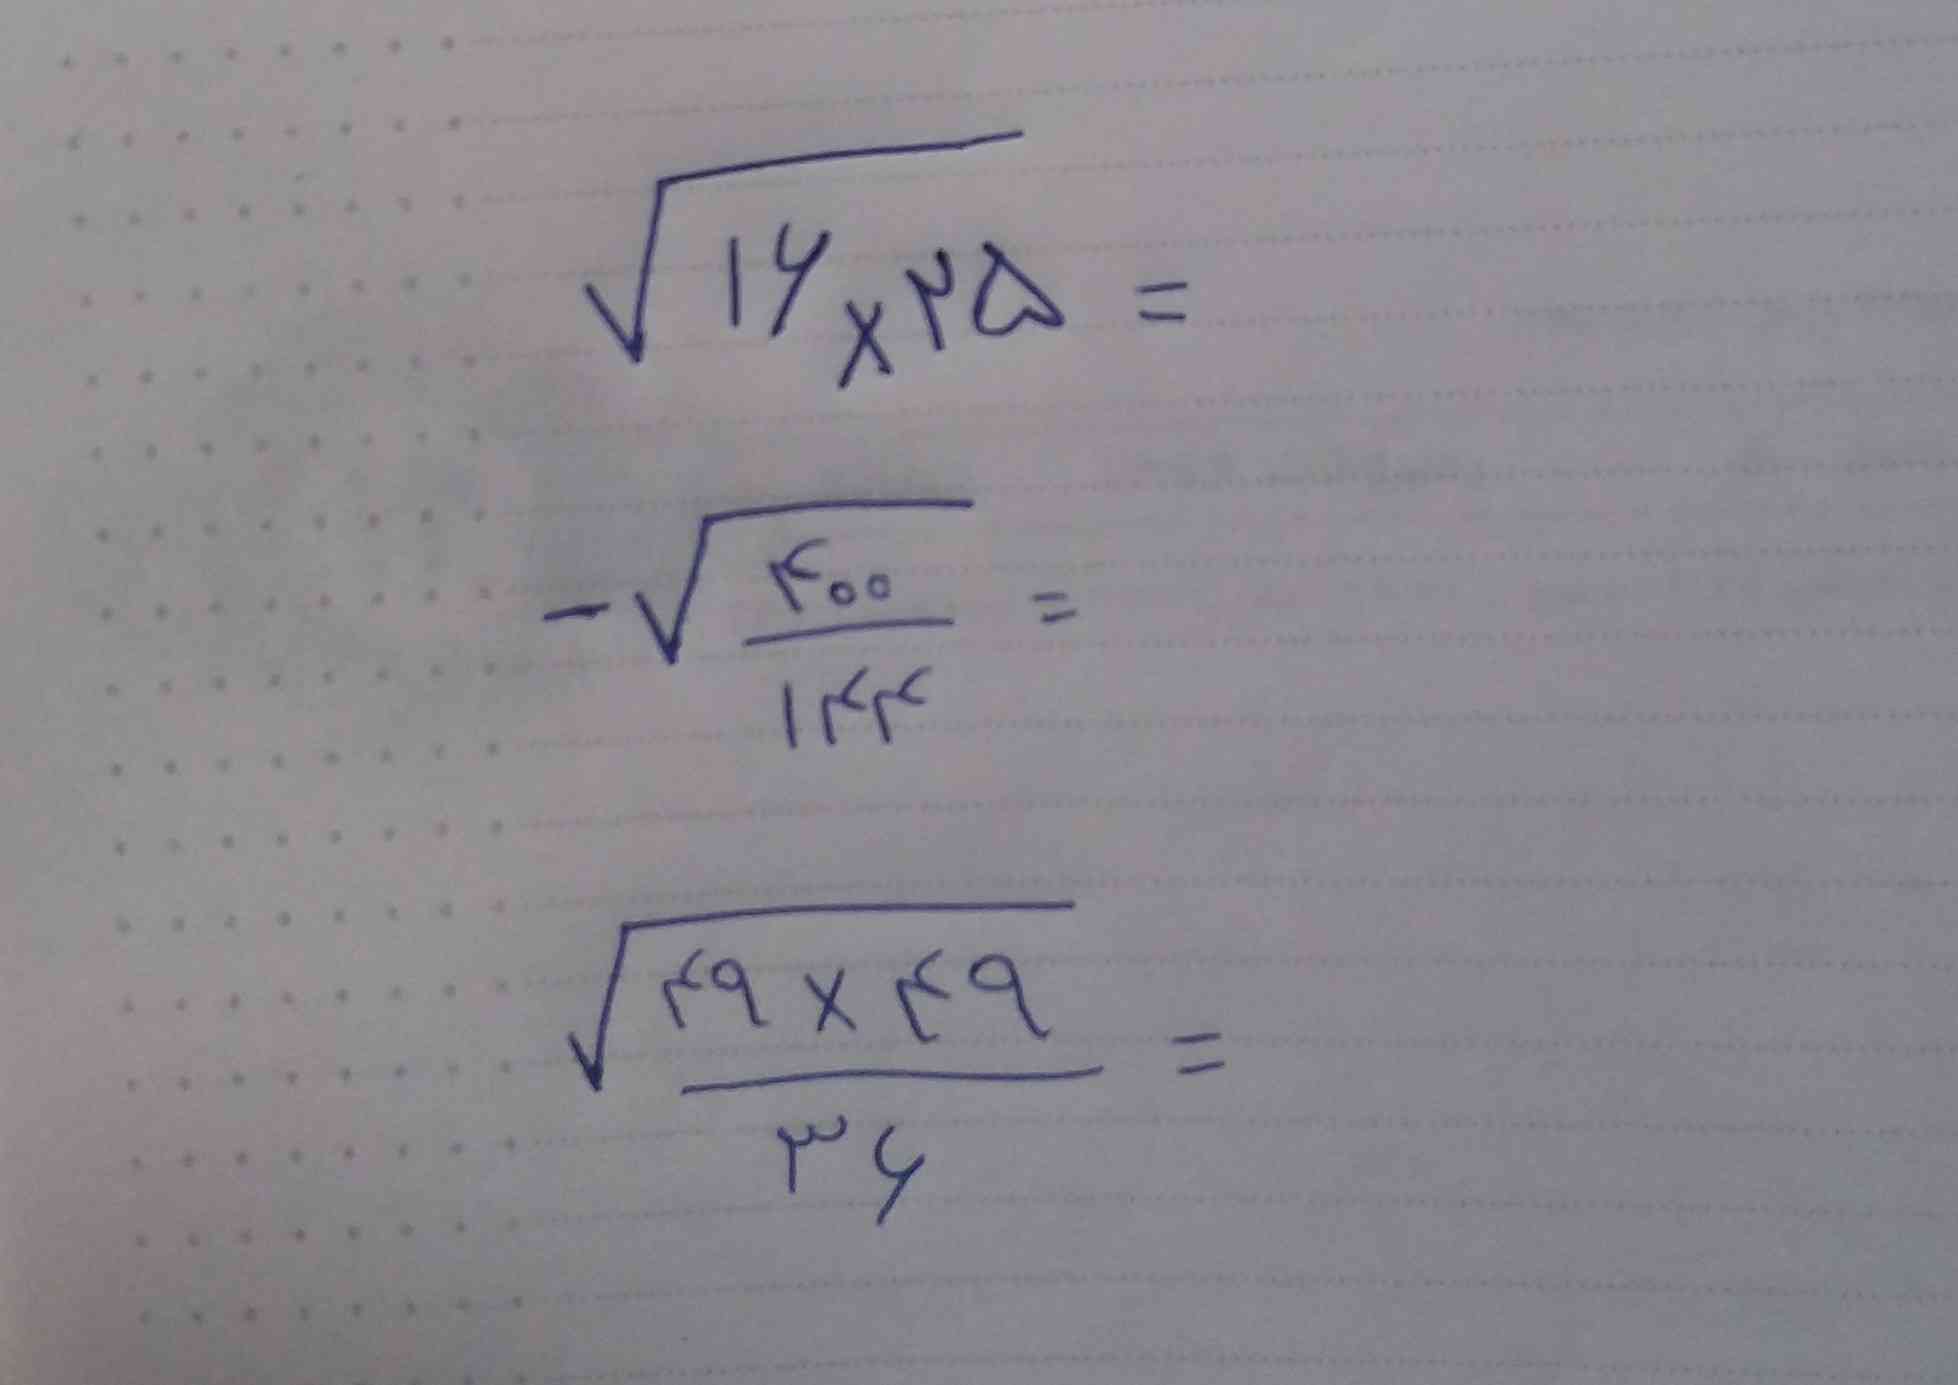 √۱۶×۲۵ =
-√۴۰۰/۱۴۴ =
√۴۹×۴۹/۳۶ =